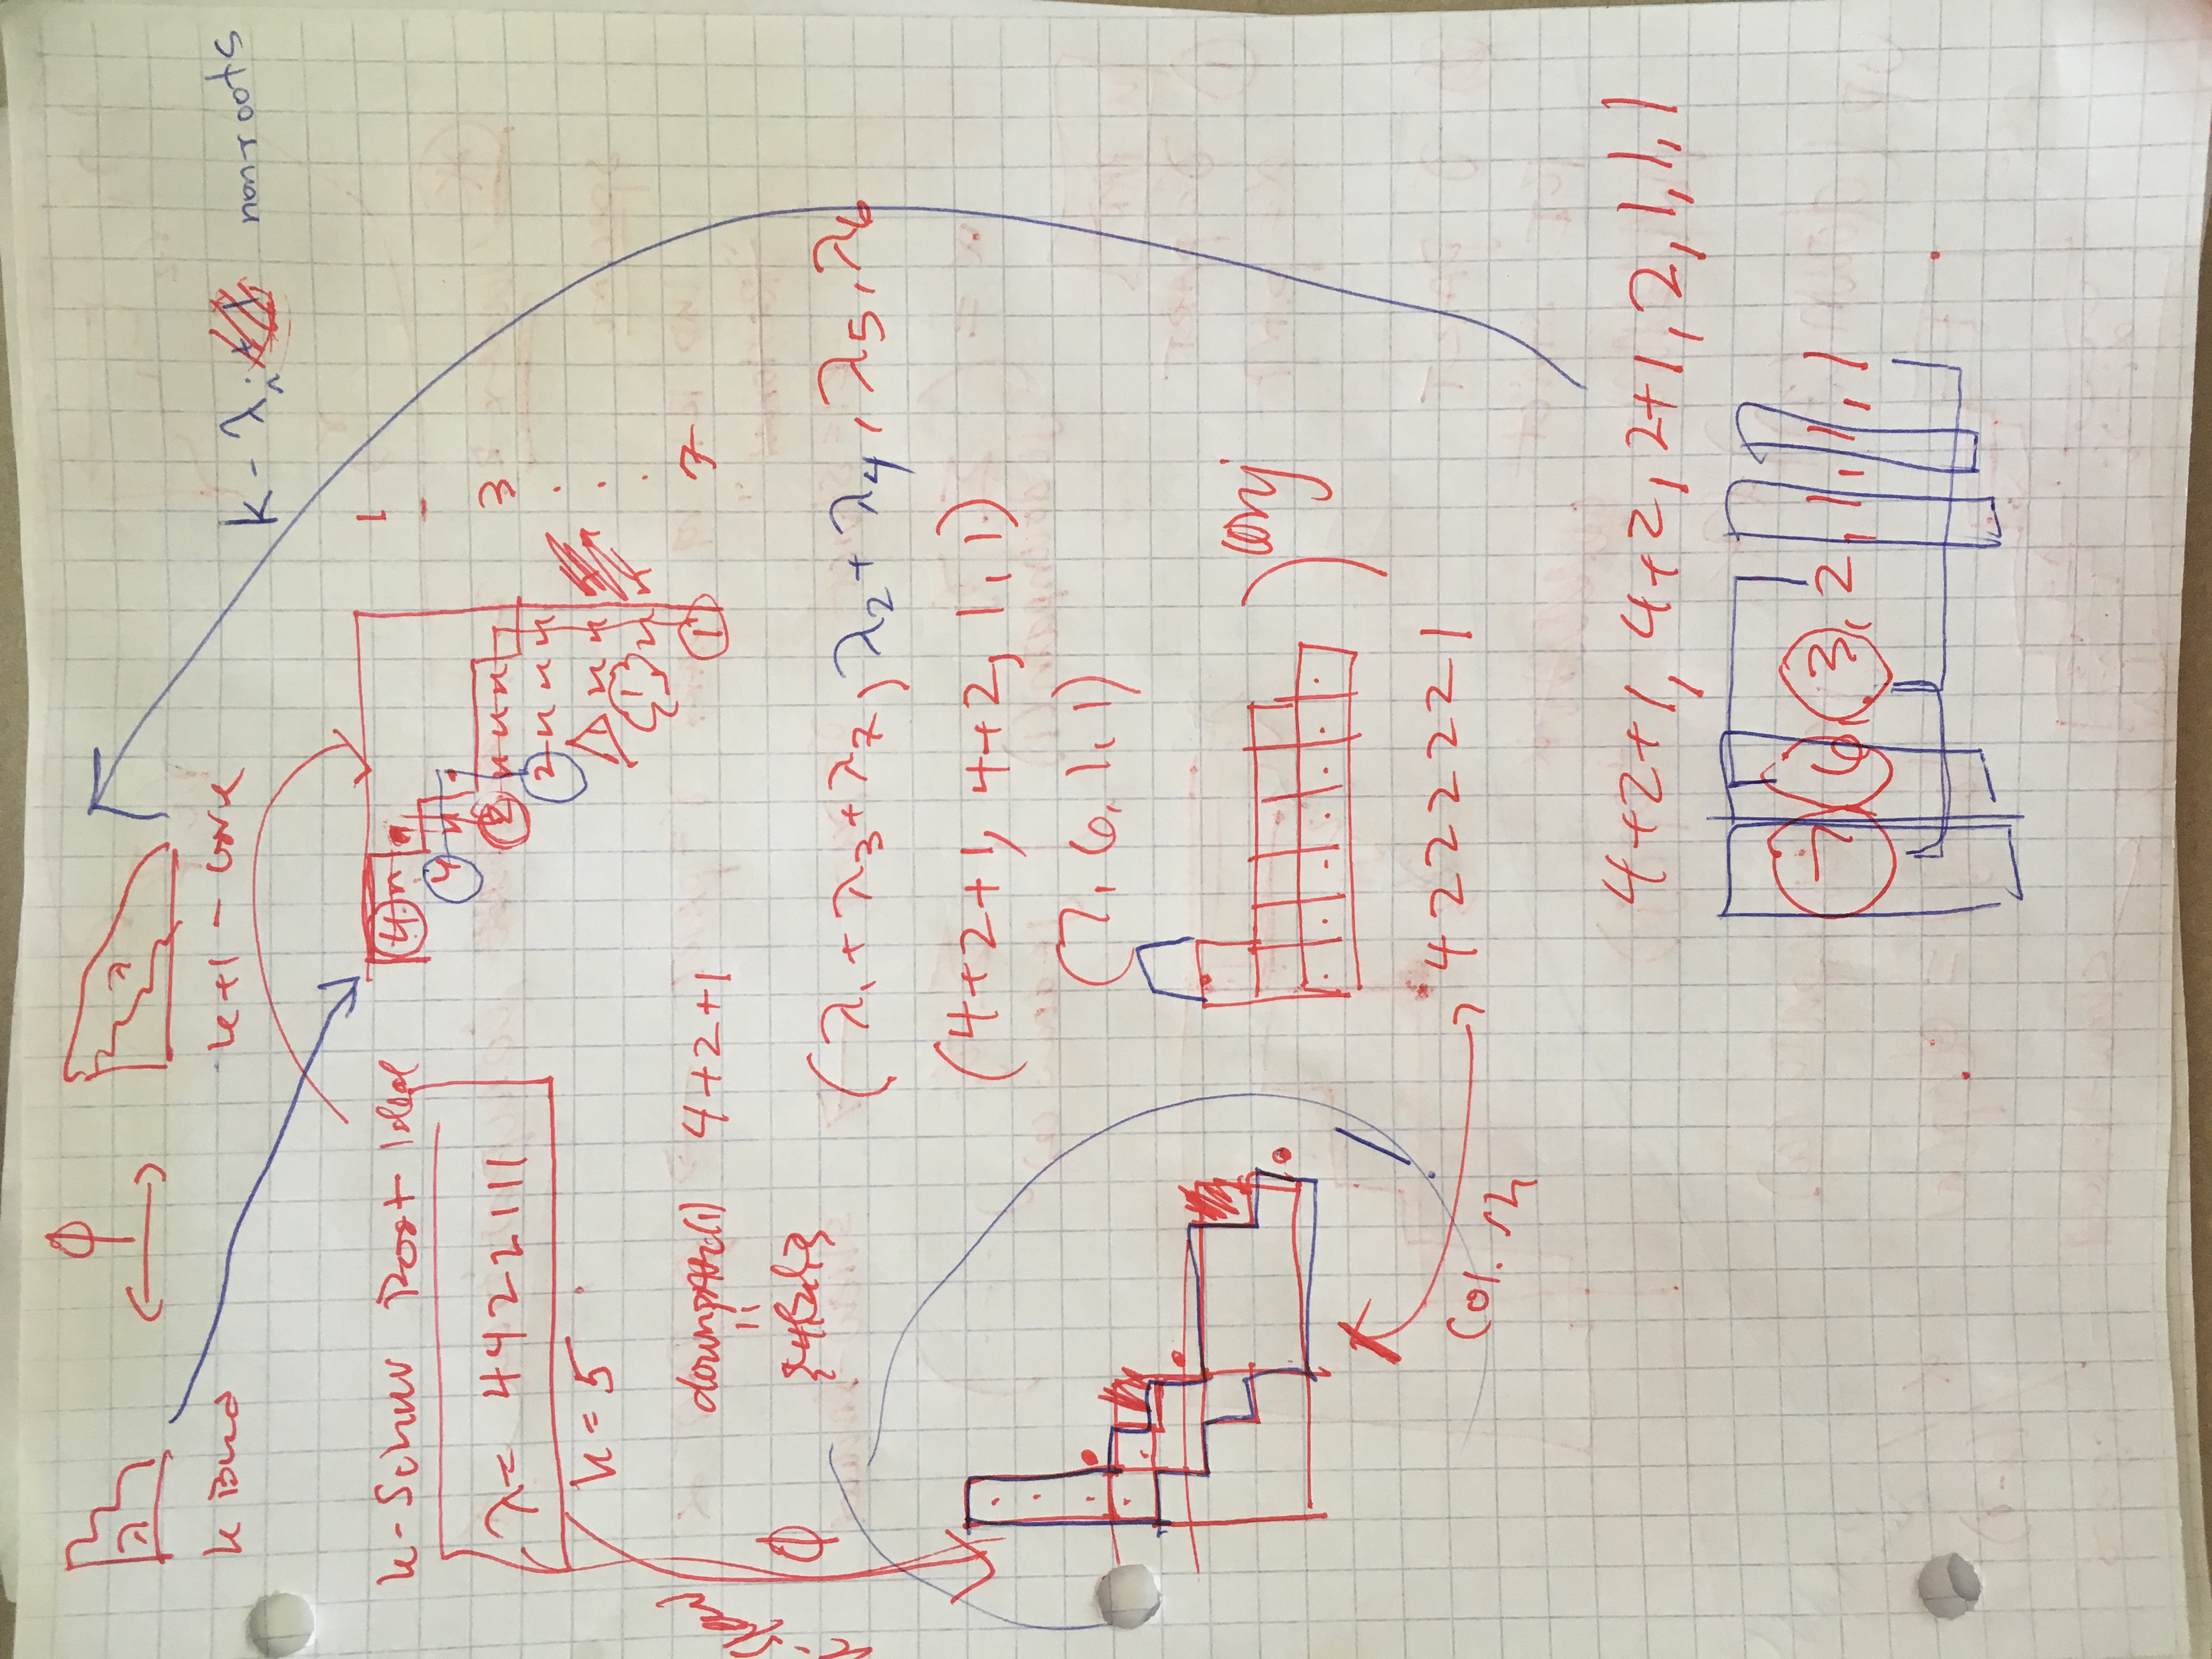 ϕ
λ
λ
k Bnd
k+1 - core
k - λi non-roots
k-Schur Root Ideal
λ = 4422111
k = 5
4 x
4 x
2 x x x
2 x x x
1 x x
1 x x
1
1
3
7
downpath(1) 4+2+1
ϕ
(λ1 + λ3 + λ7, λ2 + λ4, λ5, λ6
(4+2+1, 4+2, 1, 1)
(7, 6, 1, 1)
conj
4 2 2 2 2 2 1
Col. sh
4+2+1, 4+2, 2+1, 2, 1, 1, 1
7 6, 3, 2, 1, 1, 1